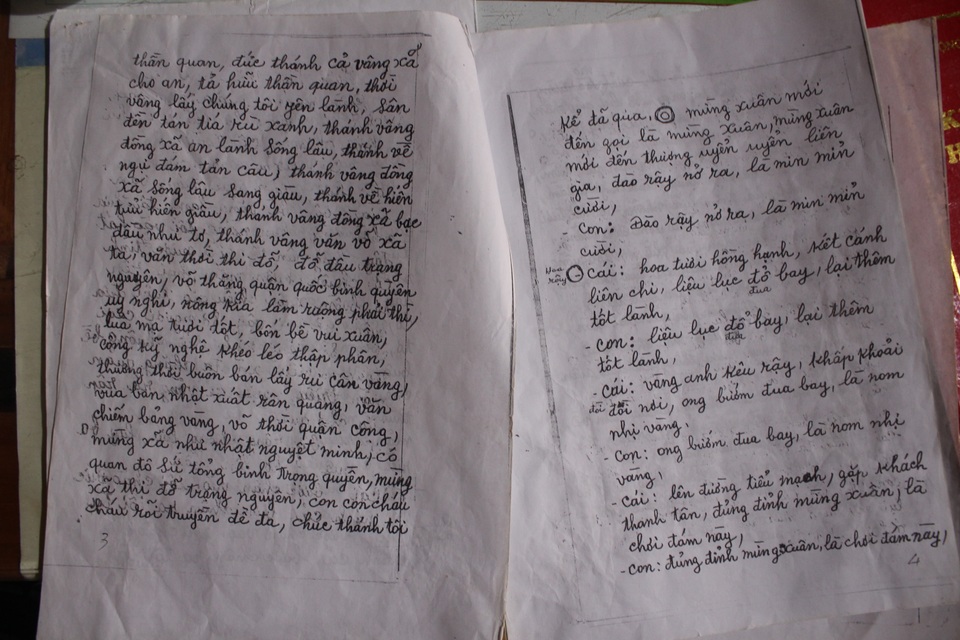 thần quan, đức thánh cả vâng xã
cho an, tả hữu thần quan, thời
vâng lấy chúng tôi yên lành, sân
đền tán tía rủ xanh, thánh vâng
đồng xã an lành sống lâu, thánh về
ngự đám tán câu, thánh vâng đồng
xã sống lâu sang giàu, thánh về hiến
tửu hiến giầu, thánh vâng đồng xã bạc
đầu như tơ, thánh vâng văn võ xã
ta, văn thời thi đỗ, đỗ đầu trạng
nguyên, võ thăng quân quốc binh quyền
uy nghi, nông kia làm ruộng phải thì,
lúa mạ tươi tốt, bốn bề vui xuân,
công kỹ nghệ khéo léo thập phân,
thương thời buôn bán lấy rủ cân vàng,
vừa bán nhật xuất rân quang, văn
chiếm bảng vàng, võ thời quận công,
mừng xã như nhật nguyệt minh, có
quan đô sứ tổng binh trọng quyền, mừng
xã thi đỗ trạng nguyên, con con cháu
cháu rồi truyền để đa, chúc thánh tôi
3
kể đã qua, mừng xuân mới
đến gọi là mừng xuân, mừng xuân
mới đến thượng uyển uyển liên
gia, đào rây nở ra, là mỉn mỉn
cười,
- Con: Đào rây nở ra, là mỉn mỉn
cười,
Hoa
rây
Cái: hoa tươi hồng hạnh, kết cánh
liên chi, liệu lục đổ bay, lại thêm
đua
tốt lành,
- Con: liệu lục đổ bay, lại thêm
đua
tốt lành,
- Cái: vàng anh kêu rây, khắp khoải
đồi nơi, ong bướm đua bay, là nom
nhị vàng.
- Con: ong bướm đua bay, là nom nhị
vàng,
- Cái: lên đường tiểu mạch, gặp khách
thanh tân, đủng đỉnh mừng xuân, là
chơi đám này,
- Con: đủng đỉnh mừng xuân, là chơi đám này,
4